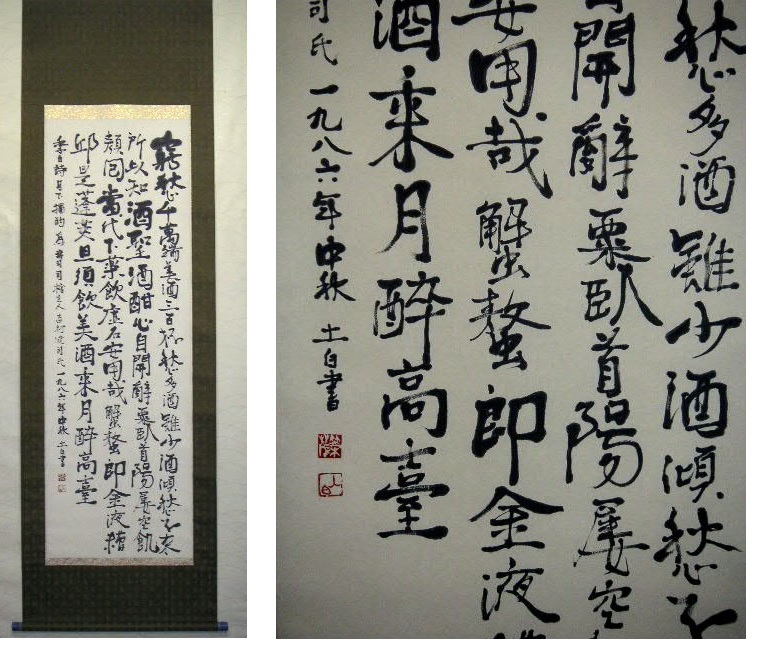 窮愁千萬端美酒三百杯愁多酒雖少酒傾愁不來
所以知酒聖酒酣心自開辭粟臥首陽屢空飢
顏回當代不樂飲虛名安用哉蟹螯即金液糟
邱是蓬萊且須飲美酒乘月醉高臺
李白詩月下獨酌為司氏一九八六年中秋 土白書
愁多酒雖少酒傾愁不
自開辭粟臥首陽屢空
安用哉蟹螯即金液糟
酒乘月醉高臺
司氏一九八六年中秋 土白書